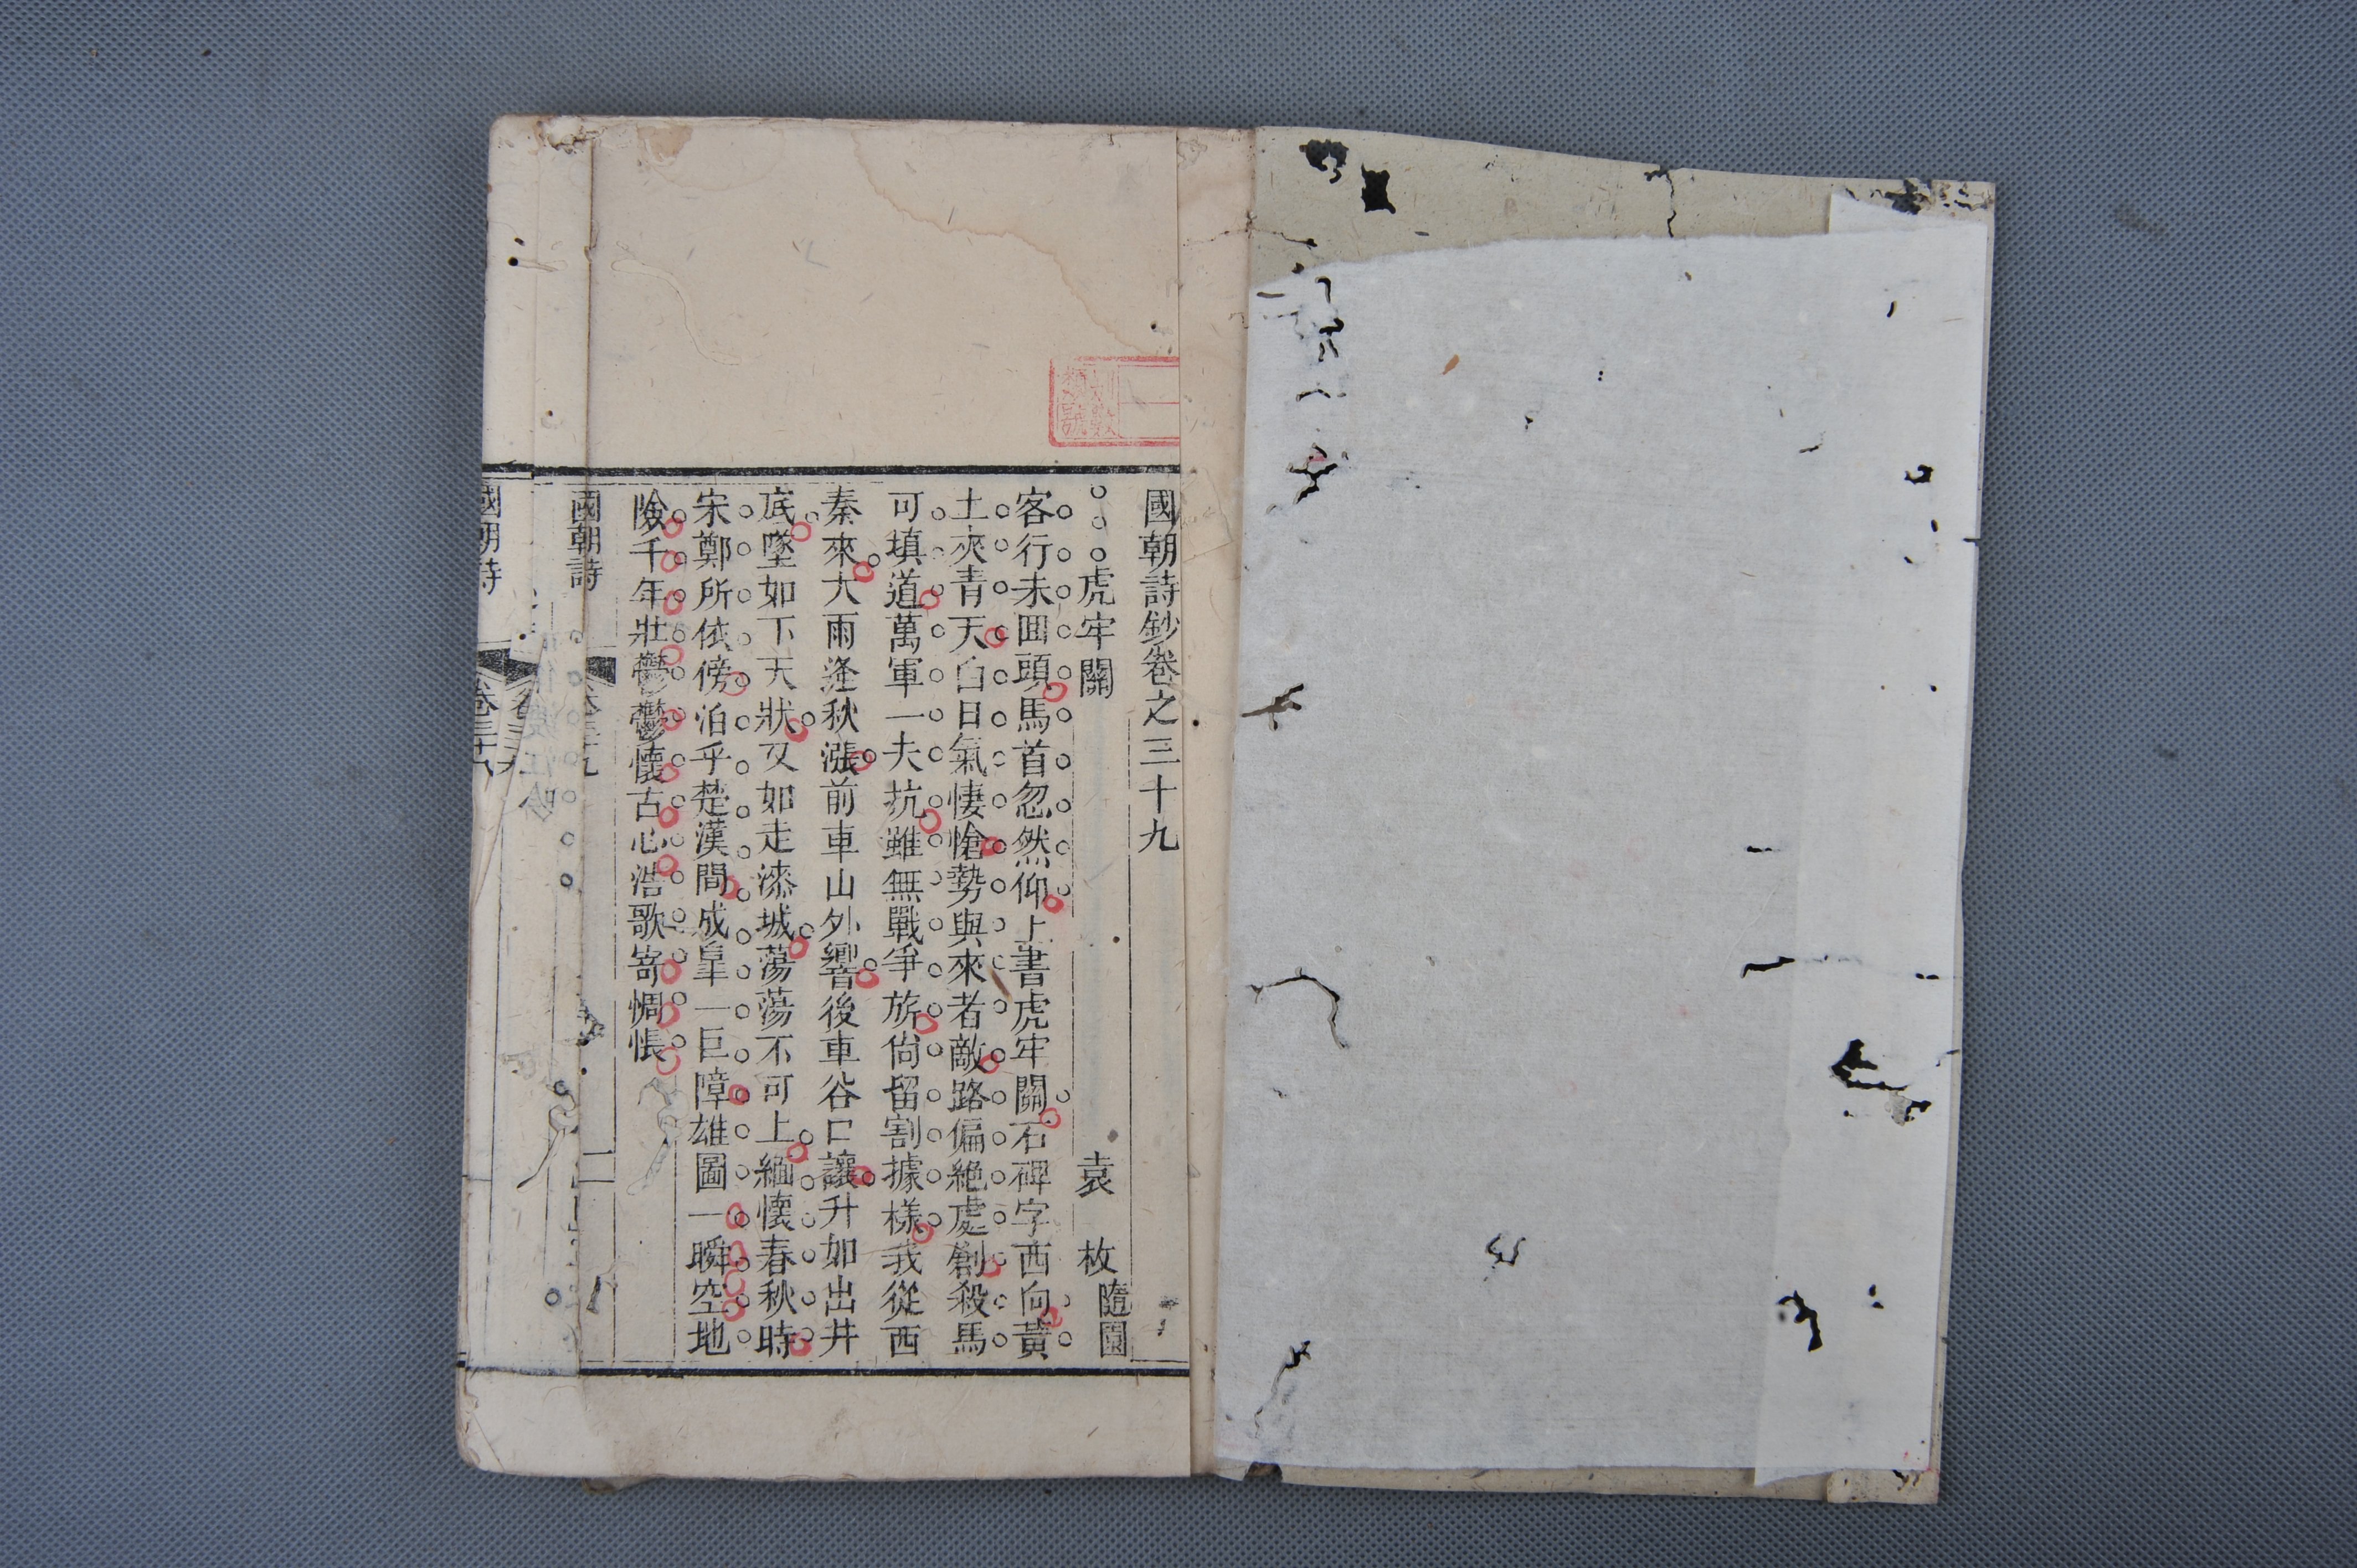 國朝詩鈔卷之三十九
虎牢關
袁枚隨園
客行未囬頭馬首忽然仰上書虎牢關石碑字西向黃
土夾青天白日氣悽愴勢與來者敵路偏絕處創殺馬
可填道萬軍一夫抗雖無戰爭旅尚留割據様我從西
秦來大雨逢秋漲前車山外響後車谷口讓升如出井
底墜如下天狀又如走漆城蕩蕩不可上緬懷春秋時
宋鄭所依傍泊乎楚漢間成皐一巨障雄圖一瞬空地
險千年壯鬱鬱懷古心浩歌寄惆悵
國朝詩
卷三十九
一
國朝詩
卷三十八